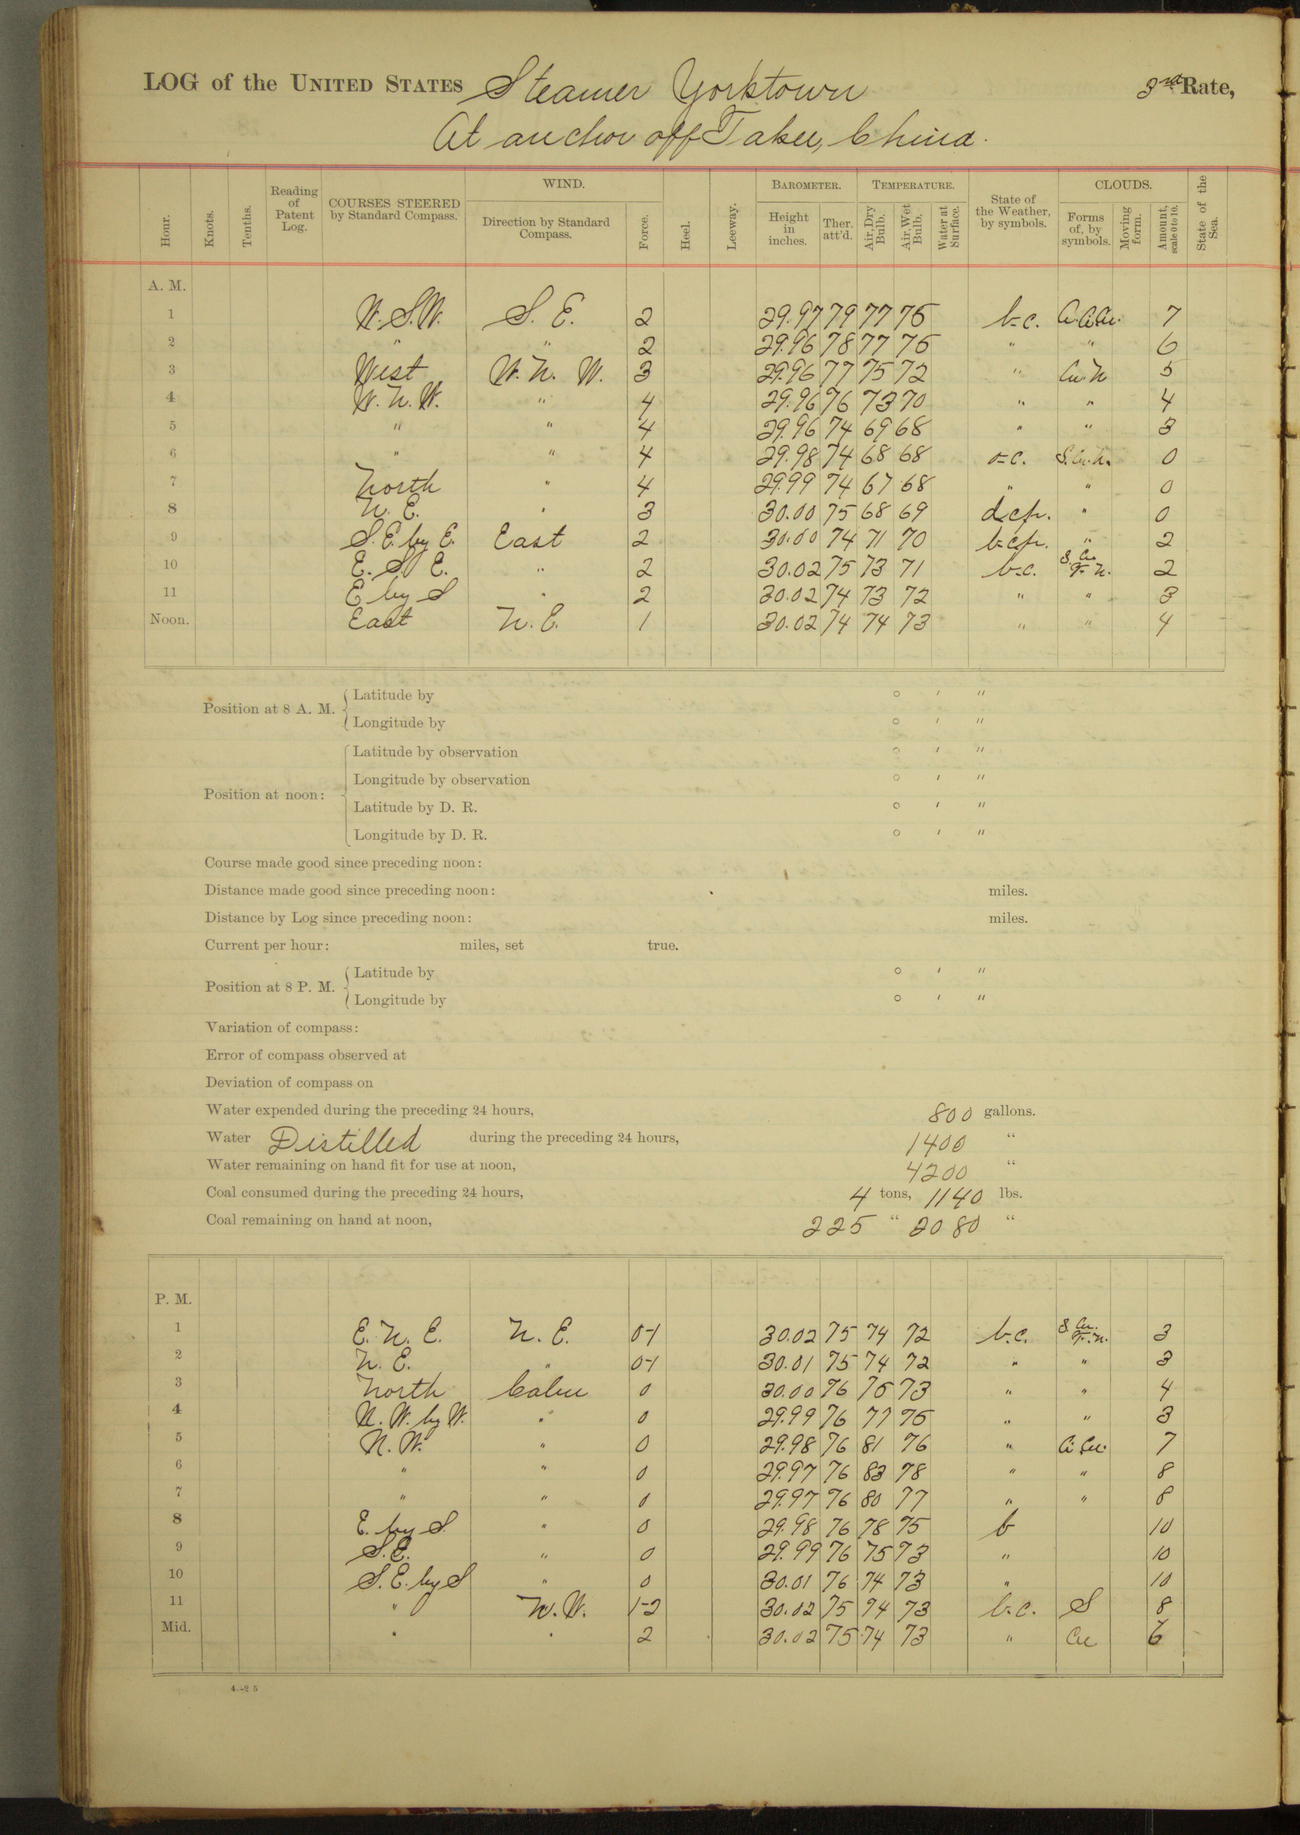 LOG of the UNITED STATES Steamer Yorktown 3rd Rate,
At anchor off Taku, China.
Hour. Knots. Tenths. Reading of Patent Log. COURSES STEERED by Standard Compass. WIND. Direction by Standard Compass. Force. Heel. Leeway. BAROMETER. Height in inches. Ther. att'd. TEMPERATURE. Air, Dry Bulb. Air, Wet Bulb. Water at Surface. State of the Weather, by symbols. CLOUDS. Forms of, by symbols. Moving form. Amount, scale 0 to 10. State of the Sea.
A. M.
1 W.S.W. S. E. 2 29.97 79 77 75 b.c. 7
2 " " 2 29.96 78 77 75 " " 6
3 West W. N. W. 3 29.96 77 75 72 " Cu. N 5
4 W. N. W. " 4 29.96 76 73 70 " " 4
5 " " 4 29.96 74 69 68 " " 3
6 " " 4 29.98 74 68 68 o.c. S. Cu. N. 0
7 North " 4 29.99 74 67 68 " " 0
8 N. E. " 3 30.00 75 68 69 d.c.p. " 0
9 S. E. by E. East 2 30.00 74 71 70 b.c.p. " 2
10 E. S. E. " 2 30.02 75 73 71 b.c. S. Cu. N. 2
11 E by S " 2 30.02 74 73 72 " " 3
Noon. East N. E. 1 30.02 74 74 73 " " 4
Position at 8 A. M. Latitude by ° ′ ″
Longitude by ° ′ ″
Position at noon: Latitude by observation ° ′ ″
Longitude by observation ° ′ ″
Latitude by D. R. ° ′ ″
Longitude by D. R. ° ′ ″
Course made good since preceding noon:
Distance made good since preceding noon: miles.
Distance by Log since preceding noon: miles.
Current per hour: miles, set true.
Position at 8 P. M. Latitude by ° ′ ″
Longitude by ° ′ ″
Variation of compass:
Error of compass observed at
Deviation of compass on
Water expended during the preceding 24 hours, 800 gallons.
Water Distilled during the preceding 24 hours, 1400 "
Water remaining on hand fit for use at noon, 4200 "
Coal consumed during the preceding 24 hours, 4 tons, 1140 lbs.
Coal remaining on hand at noon, 225 " 2080 "
P. M.
1 E. N. E. N. E. 0-1 30.02 75 74 72 b.c. S. Cu. N. 3
2 N. E. " 0-1 30.01 75 74 72 " " 3
3 North Calm 0 30.00 76 75 73 " " 4
4 N. W. by W. " 0 29.99 76 77 75 " " 3
5 N. W. " 0 29.98 76 81 76 " Ci. Cu. 7
6 " " 0 29.97 76 83 78 " " 8
7 " " 0 29.97 76 80 77 " " 8
8 E. by S. " 0 29.98 76 78 75 b 10
9 S. E. " 0 29.99 76 75 73 " 10
10 S. E. by S " 0 30.01 76 74 73 " 10
11 " N. W. 1-2 30.02 75 74 73 b.c. S 8
Mid. " " 2 30.02 75 74 73 " Cu 6
4.-25